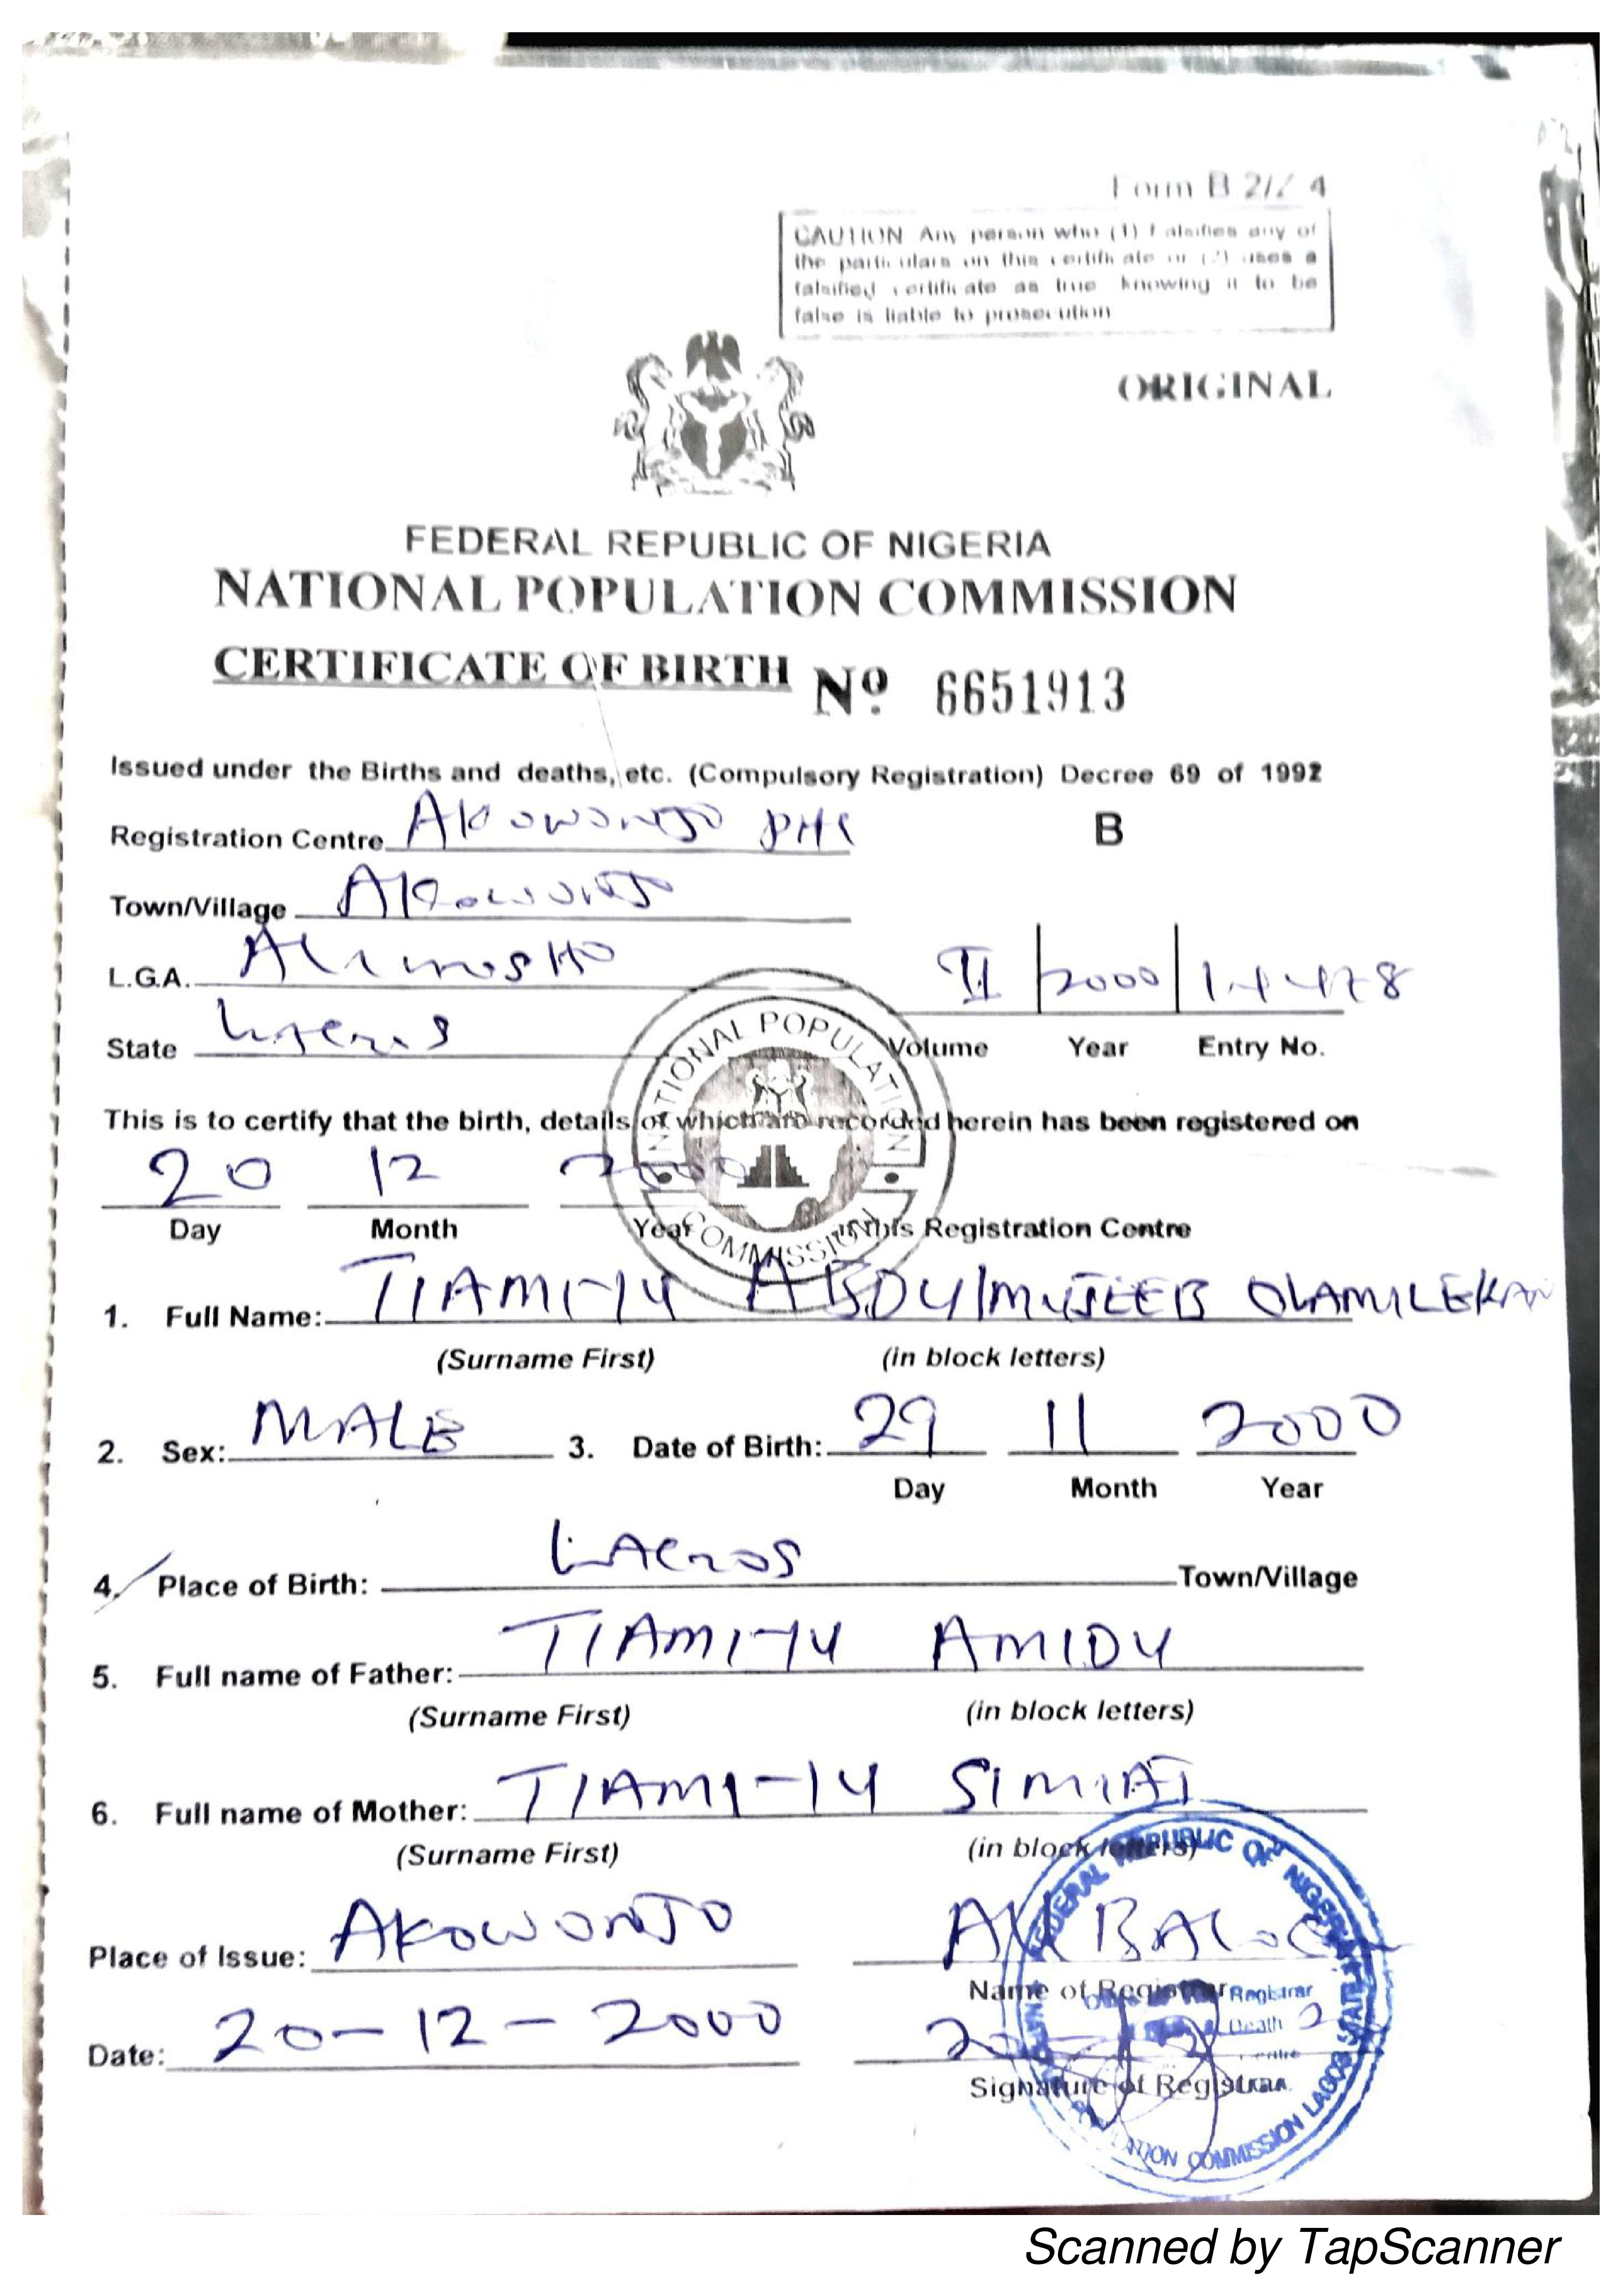 Form B 2/Z 4
CAUTION Any person who (1) Falsifies any of
the particulars on this certificate or (2) uses a
falsified certificate as true knowing it to be
false is liable to prosecution
ORIGINAL
FEDERAL REPUBLIC OF NIGERIA
NATIONAL POPULATION COMMISSION
CERTIFICATE OF BIRTH Nº 6651913
Issued under the Births and deaths, etc. (Compulsory Registration) Decree 69 of 1992
Registration Centre AKOWONJO PHC
B
Town/Village AKOWONJO
L.G.A. ALIMOSHO
II 2000
State LAGOS
Volume Year Entry No.
This is to certify that the birth, details of which are recorded herein has been registered on
20 12 2000
Day Month Year in this Registration Centre
1. Full Name: TIAMI-IU ABDULMUJEEB OLAMILEKAN
(Surname First) (in block letters)
2. Sex: MALE 3. Date of Birth: 29 11 2000
Day Month Year
4. Place of Birth: LAGOS Town/Village
5. Full name of Father: TIAMI-IU AMIDU
(Surname First) (in block letters)
6. Full name of Mother: TIAMI-IU SIMIAT
(Surname First) (in block letters)
Place of Issue: AKOWONJO
Name of Registrar
Date: 20-12-2000
Signature of Registrar
NATIONAL POPULATION COMMISSION
FEDERAL REPUBLIC OF NIGERIA
POPULATION COMMISSION LAGOS STATE
Registrar
Death
Scanned by TapScanner